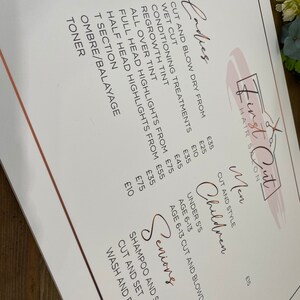 First Cut
HAIR SALON
Ladies
CUT AND BLOW DRY FROM £35
WET CUT £25
CONDITIONING TREATMENTS £10
REGROWTH TINT £35
ALL OVER TINT £45
FULL HEAD HIGHLIGHTS FROM £75
HALF HEAD HIGHLIGHTS FROM £55
T SECTION £35
OMBRE/BALAYAGE £75
TONER £10
Men
CUT AND STYLE £15
Children
UNDER 5'S
AGE 6-13
AGE 6-13 CUT AND BLOW
Seniors
SHAMPOO AND S
CUT AND SET
WASH AND